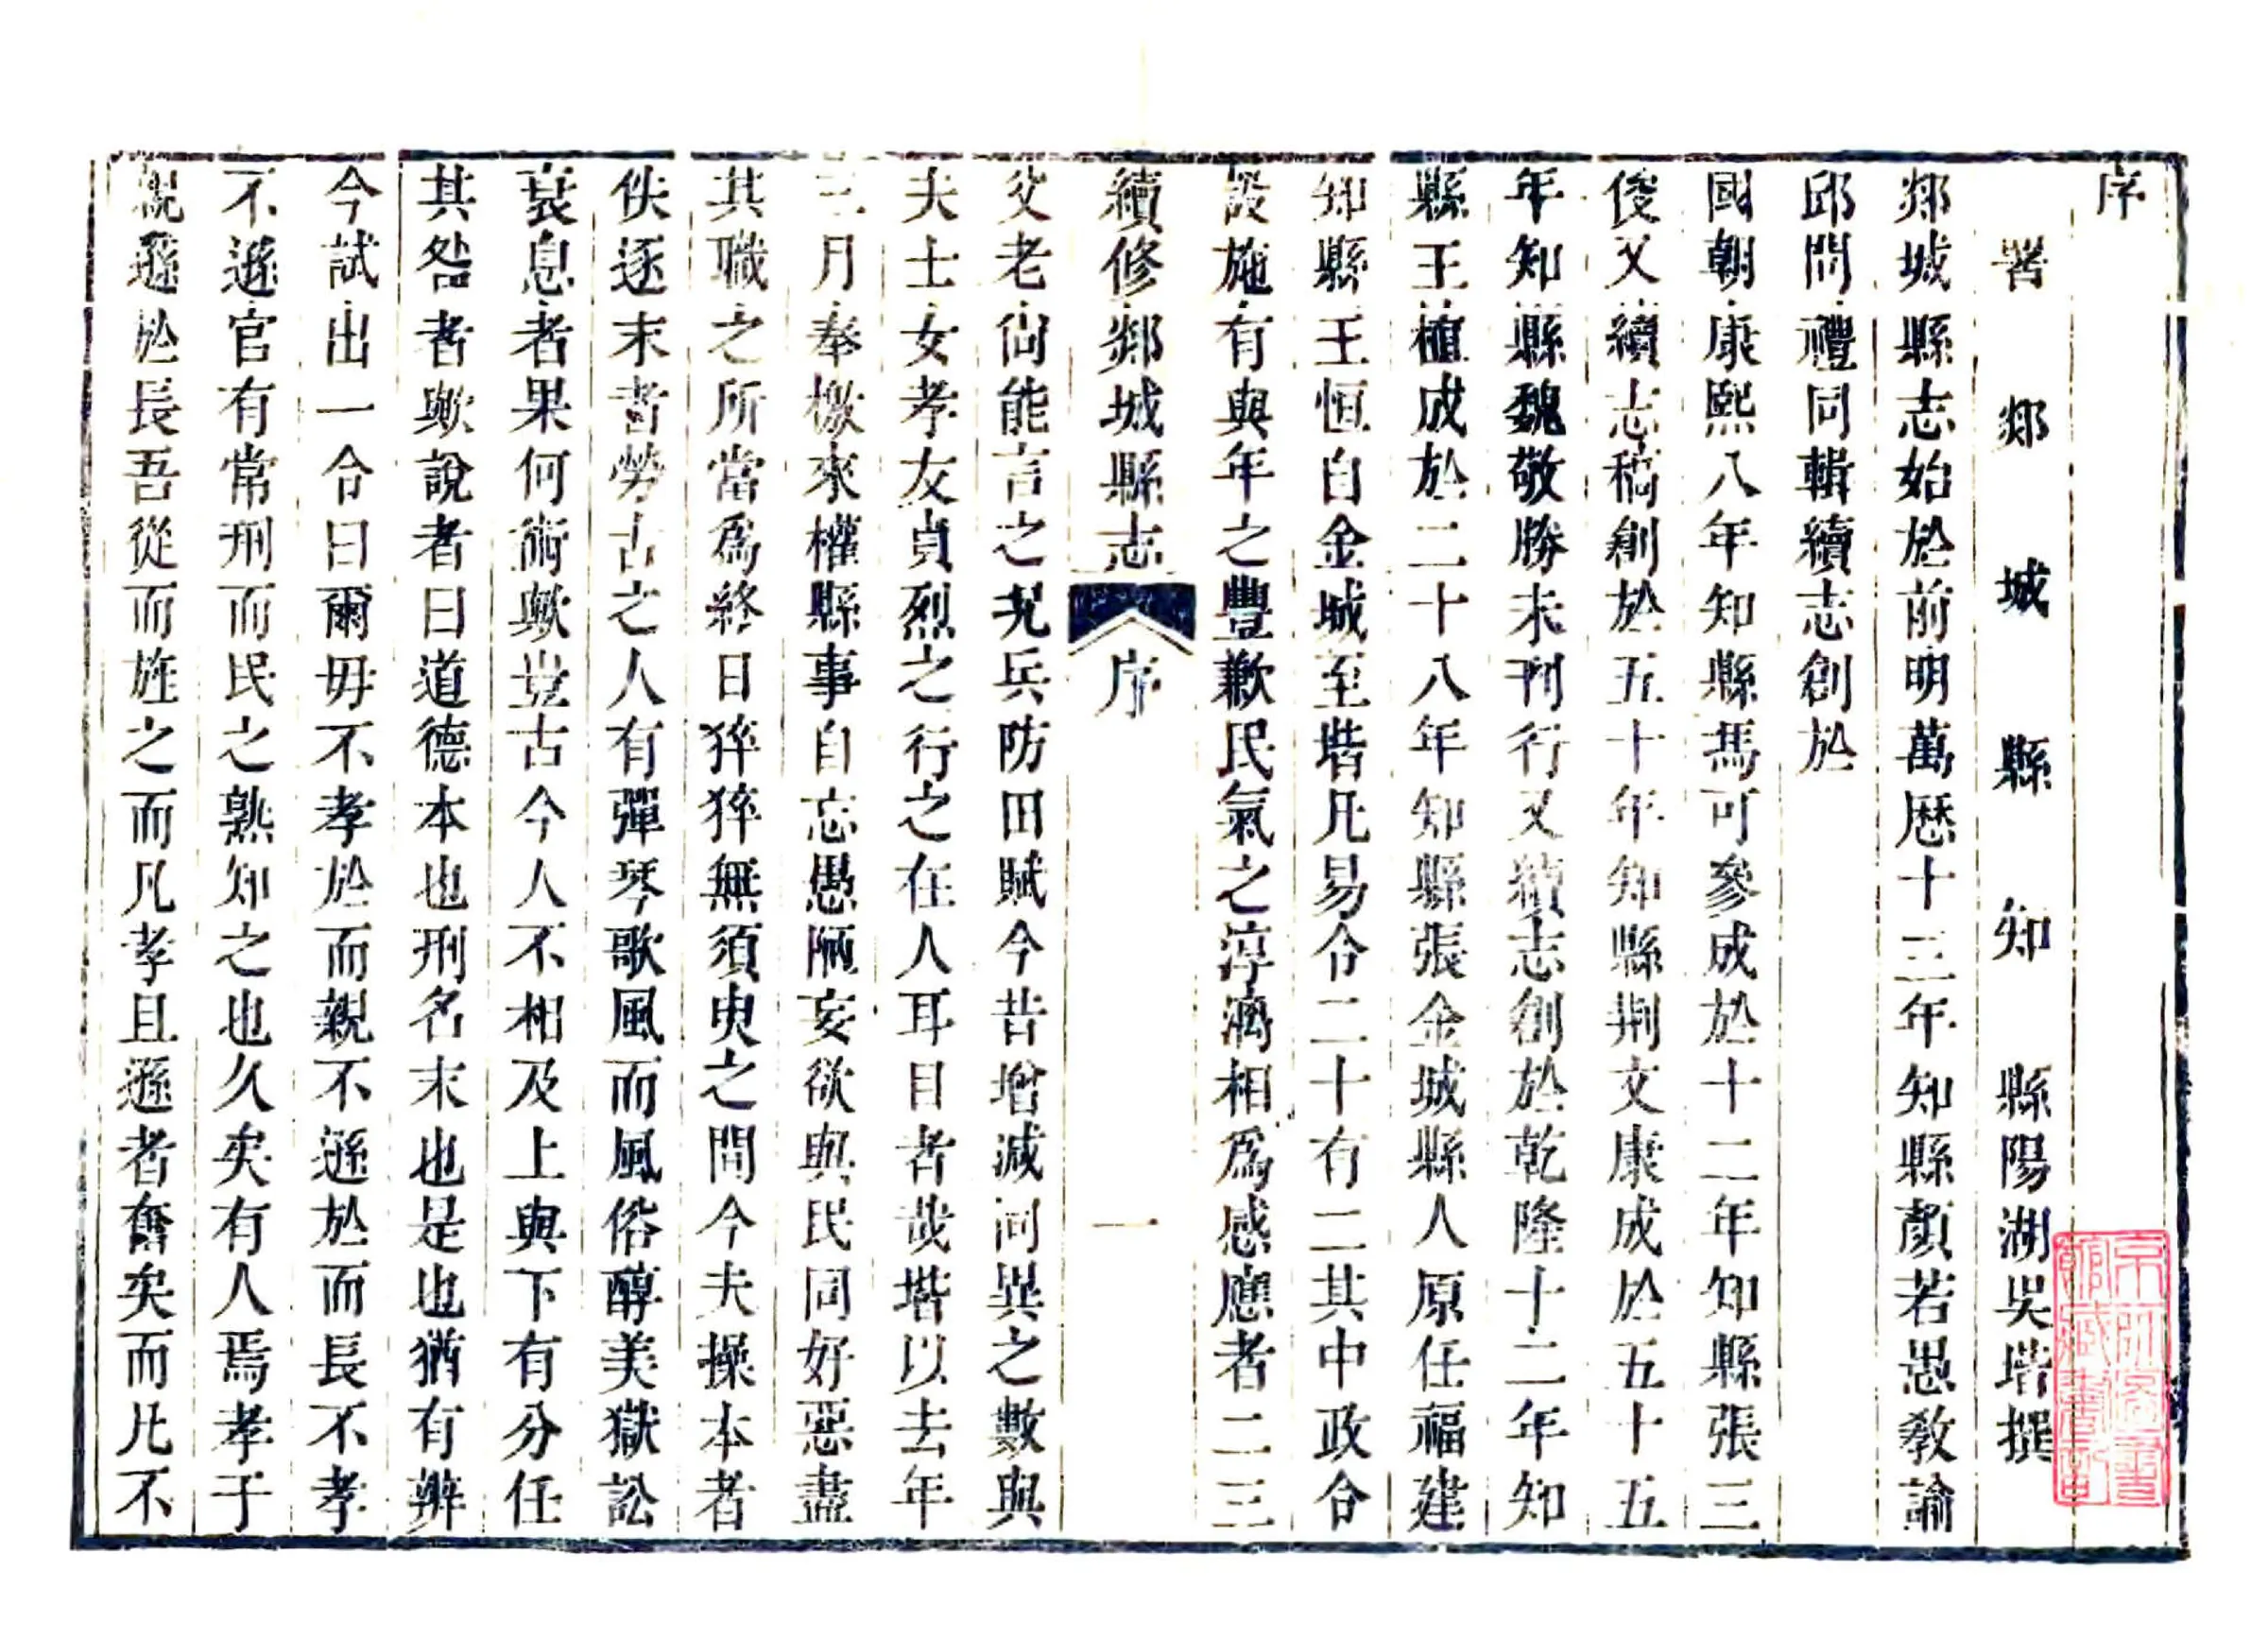 序
署郯城縣知縣陽湖吳堦撰
郯城縣志始於前明萬厯十三年知縣顏若愚敎諭
邱問禮同輯續志創於
國朝康熙八年知縣馮可參成於十二年知縣張三
俊又續志稿創於五十年知縣荆文康成於五十五
年知縣魏敬勝未刊行又續志創於乾隆十二年知
縣王植成於二十八年知縣張金城縣人原任福建
知縣王恒自金城至堦凡易令二十有二其中政令
設施有與年之豐歉民氣之淳漓相爲感應者二三
續修郯城縣志 序 一
父老尙能言之况兵防田賦今昔增減同異之數與
夫士女孝友貞烈之行之在人耳目者哉堦以去年
三月奉檄來權縣事自忘愚陋妄欲與民同好惡盡
其職之所當爲終日猝猝無須臾之間今夫操本者
佚逐末者勞古之人有彈琴歌風而風俗醇美獄訟
衰息者果何術歟豈古今人不相及上與下有分任
其咎者歟說者曰道德本也刑名末也是也猶有辨
今試出一令曰爾毋不孝於而親不遜於而長不孝
不遜官有常刑而民之熟知之也久矣有人焉孝于
親遜於長吾從而旌之而凡孝且遜者奮矣而凡不